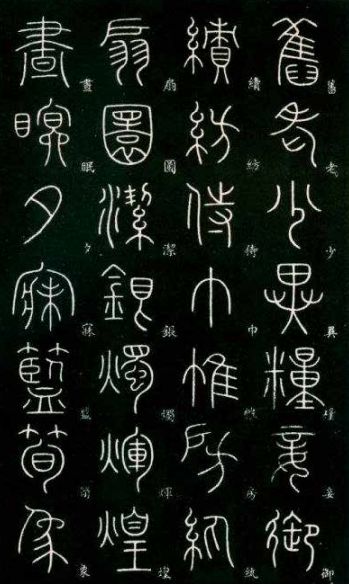 舊老少異糧妾御
舊老少異糧妾御
績紡侍巾帷房紈
績紡侍巾帷房紈
扇圓潔銀燭煒煌
扇圓潔銀燭煒煌
晝眠夕寐藍筍象
晝眠夕寐藍筍象